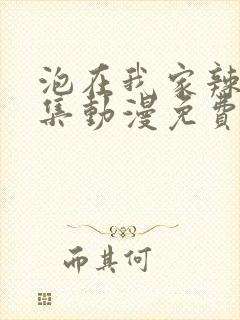 泡在我家辣
集動漫免費
而其何